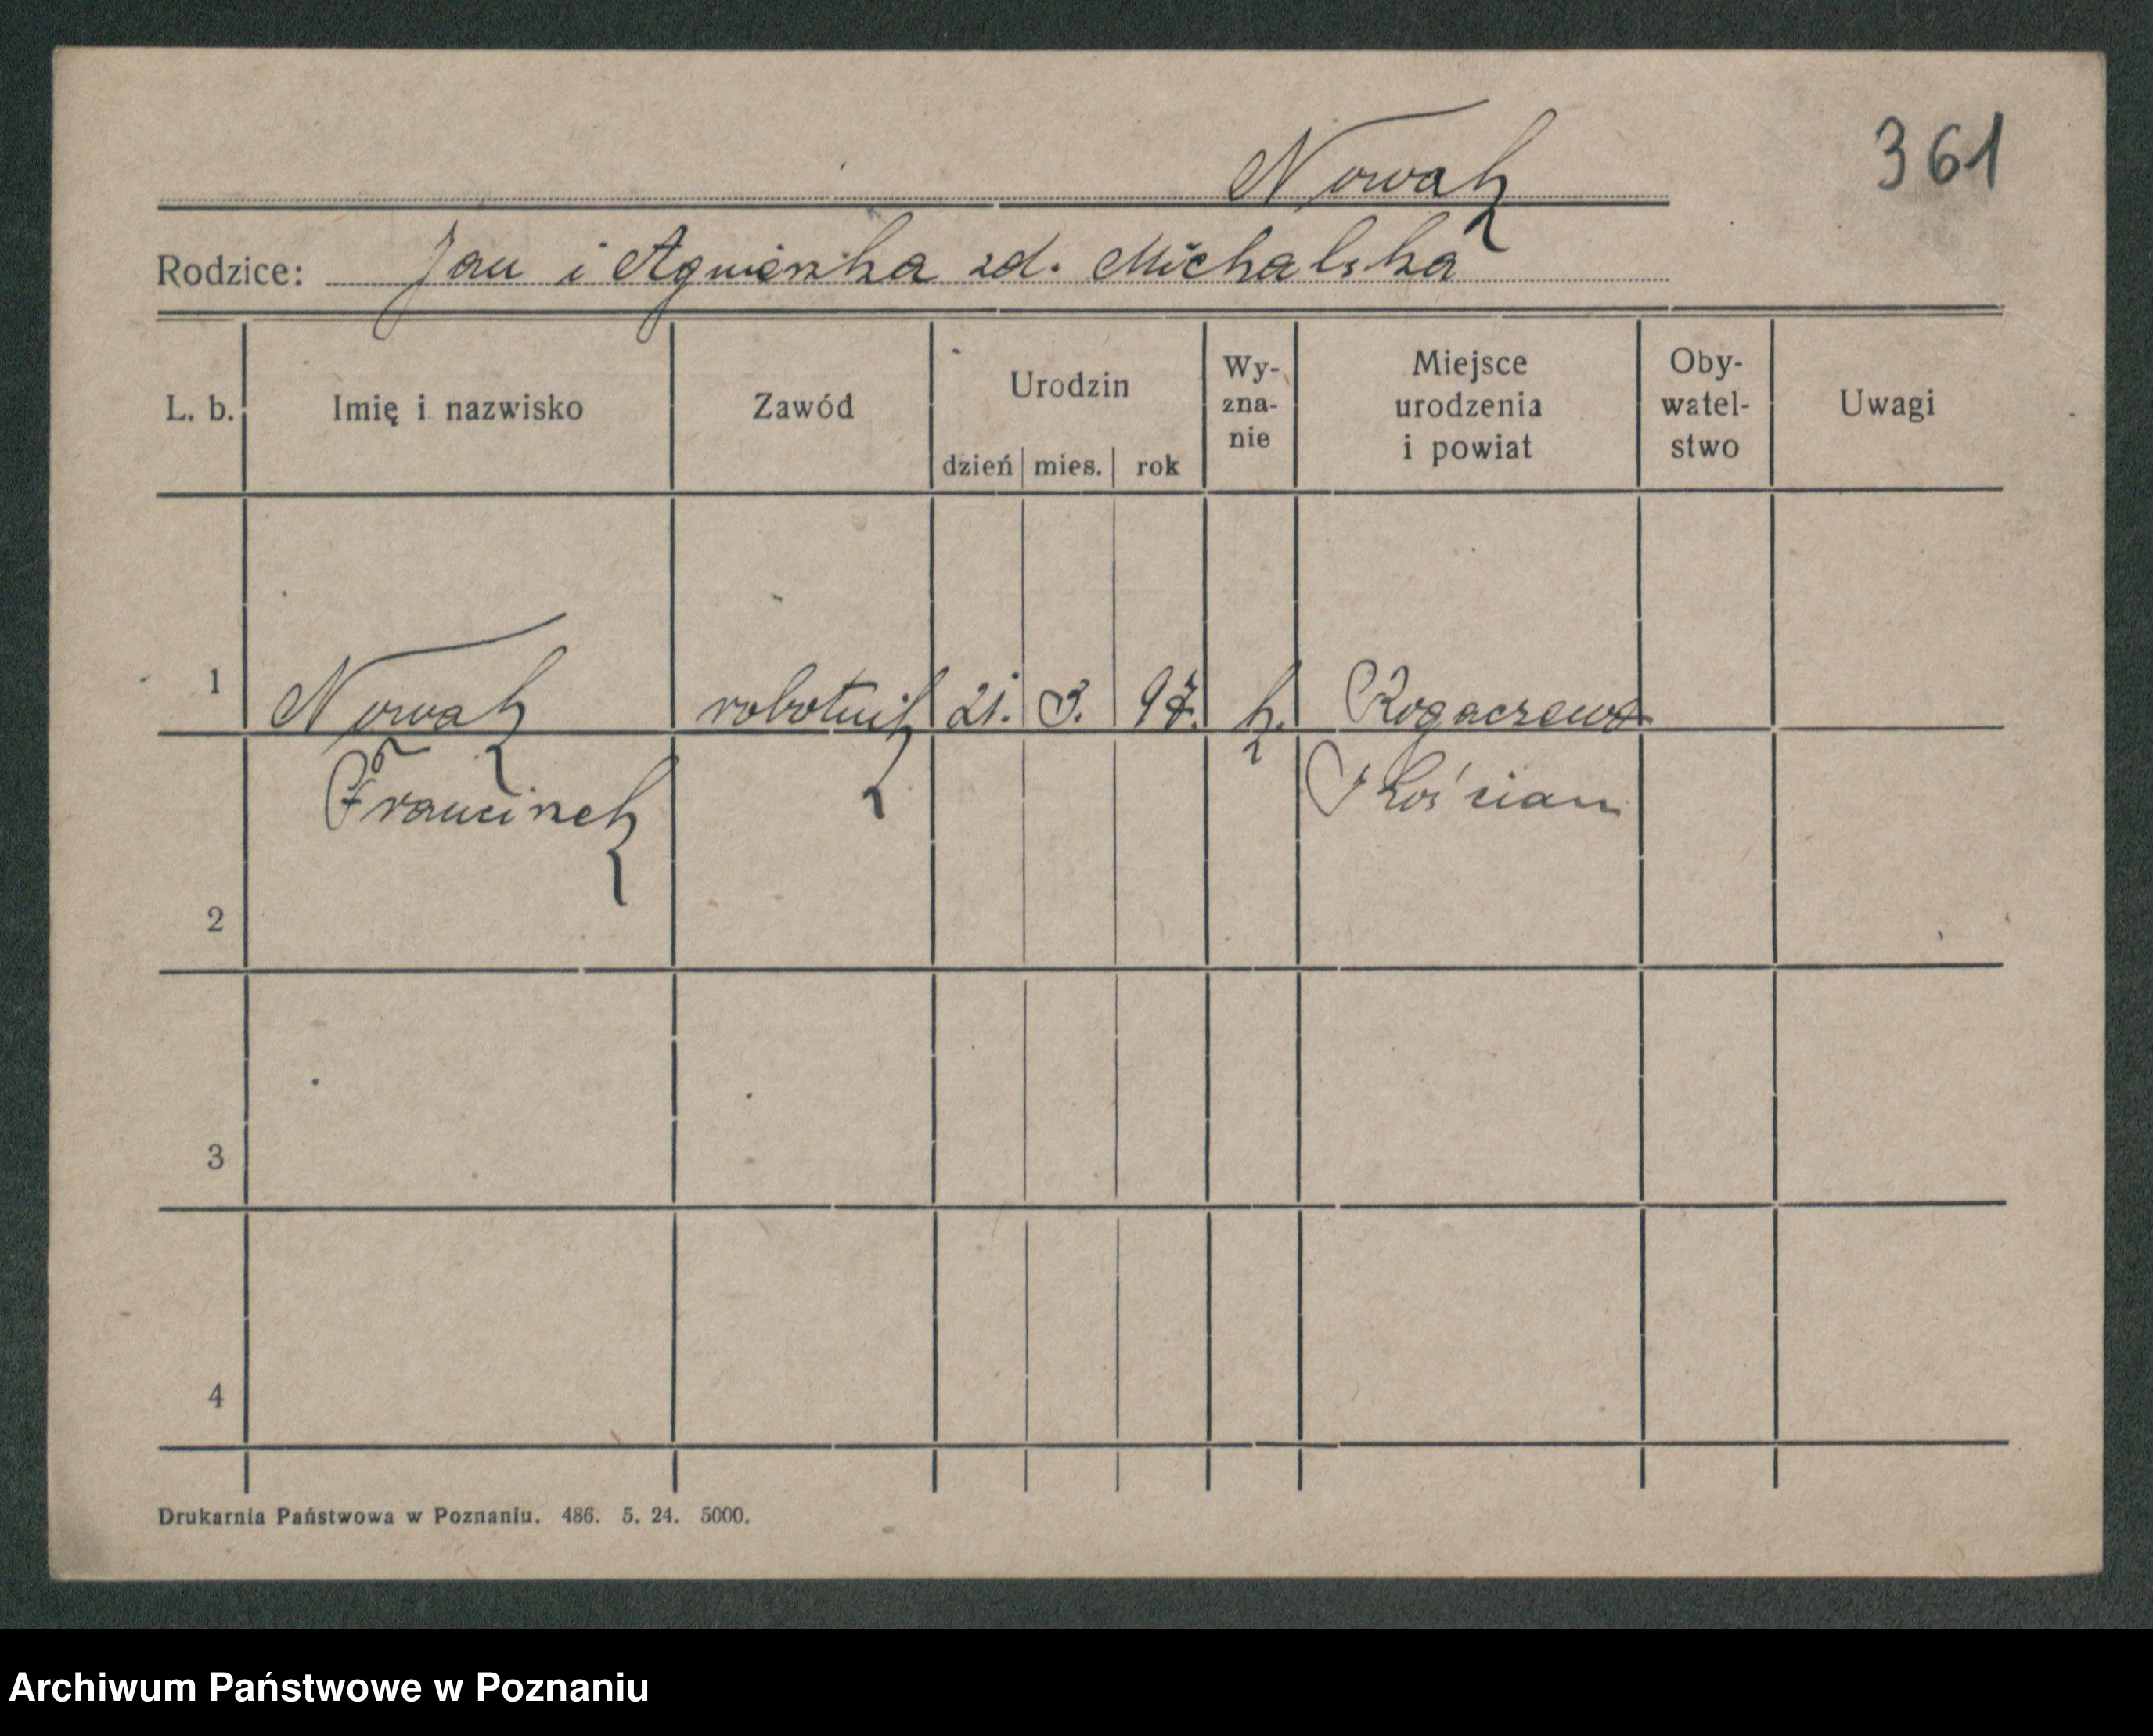 Nowak
361
Rodzice: Jan i Agnieszka zd. Michalska
L. b.
Imię i nazwisko
Zawód
Urodzin
dzień mies. rok
Wy-
zna-
nie
Miejsce
urodzenia
i powiat
Oby-
watel-
stwo
Uwagi
1 Nowak robotnik 21. 3. 97. k. Rogaczewo
Franciszek Kościan
2
3
4
Drukarnia Państwowa w Poznaniu. 486. 5. 24. 5000.
Archiwum Państwowe w Poznaniu